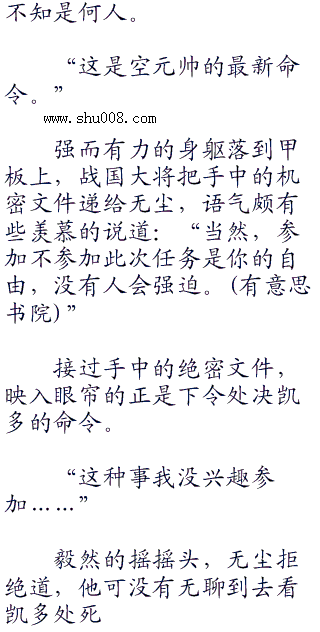 不知是何人。
“这是空元帅的最新命
令。”
www.shu008.com
强而有力的身躯落到甲
板上，战国大将把手中的机
密文件递给无尘，语气颇有
些羡慕的说道：“当然，参
加不参加此次任务是你的自
由，没有人会强迫。(有意思
书院)”
接过手中的绝密文件，
映入眼帘的正是下令处决凯
多的命令。
“这种事我没兴趣参
加……”
毅然的摇摇头，无尘拒
绝道，他可没有无聊到去看
凯多处死